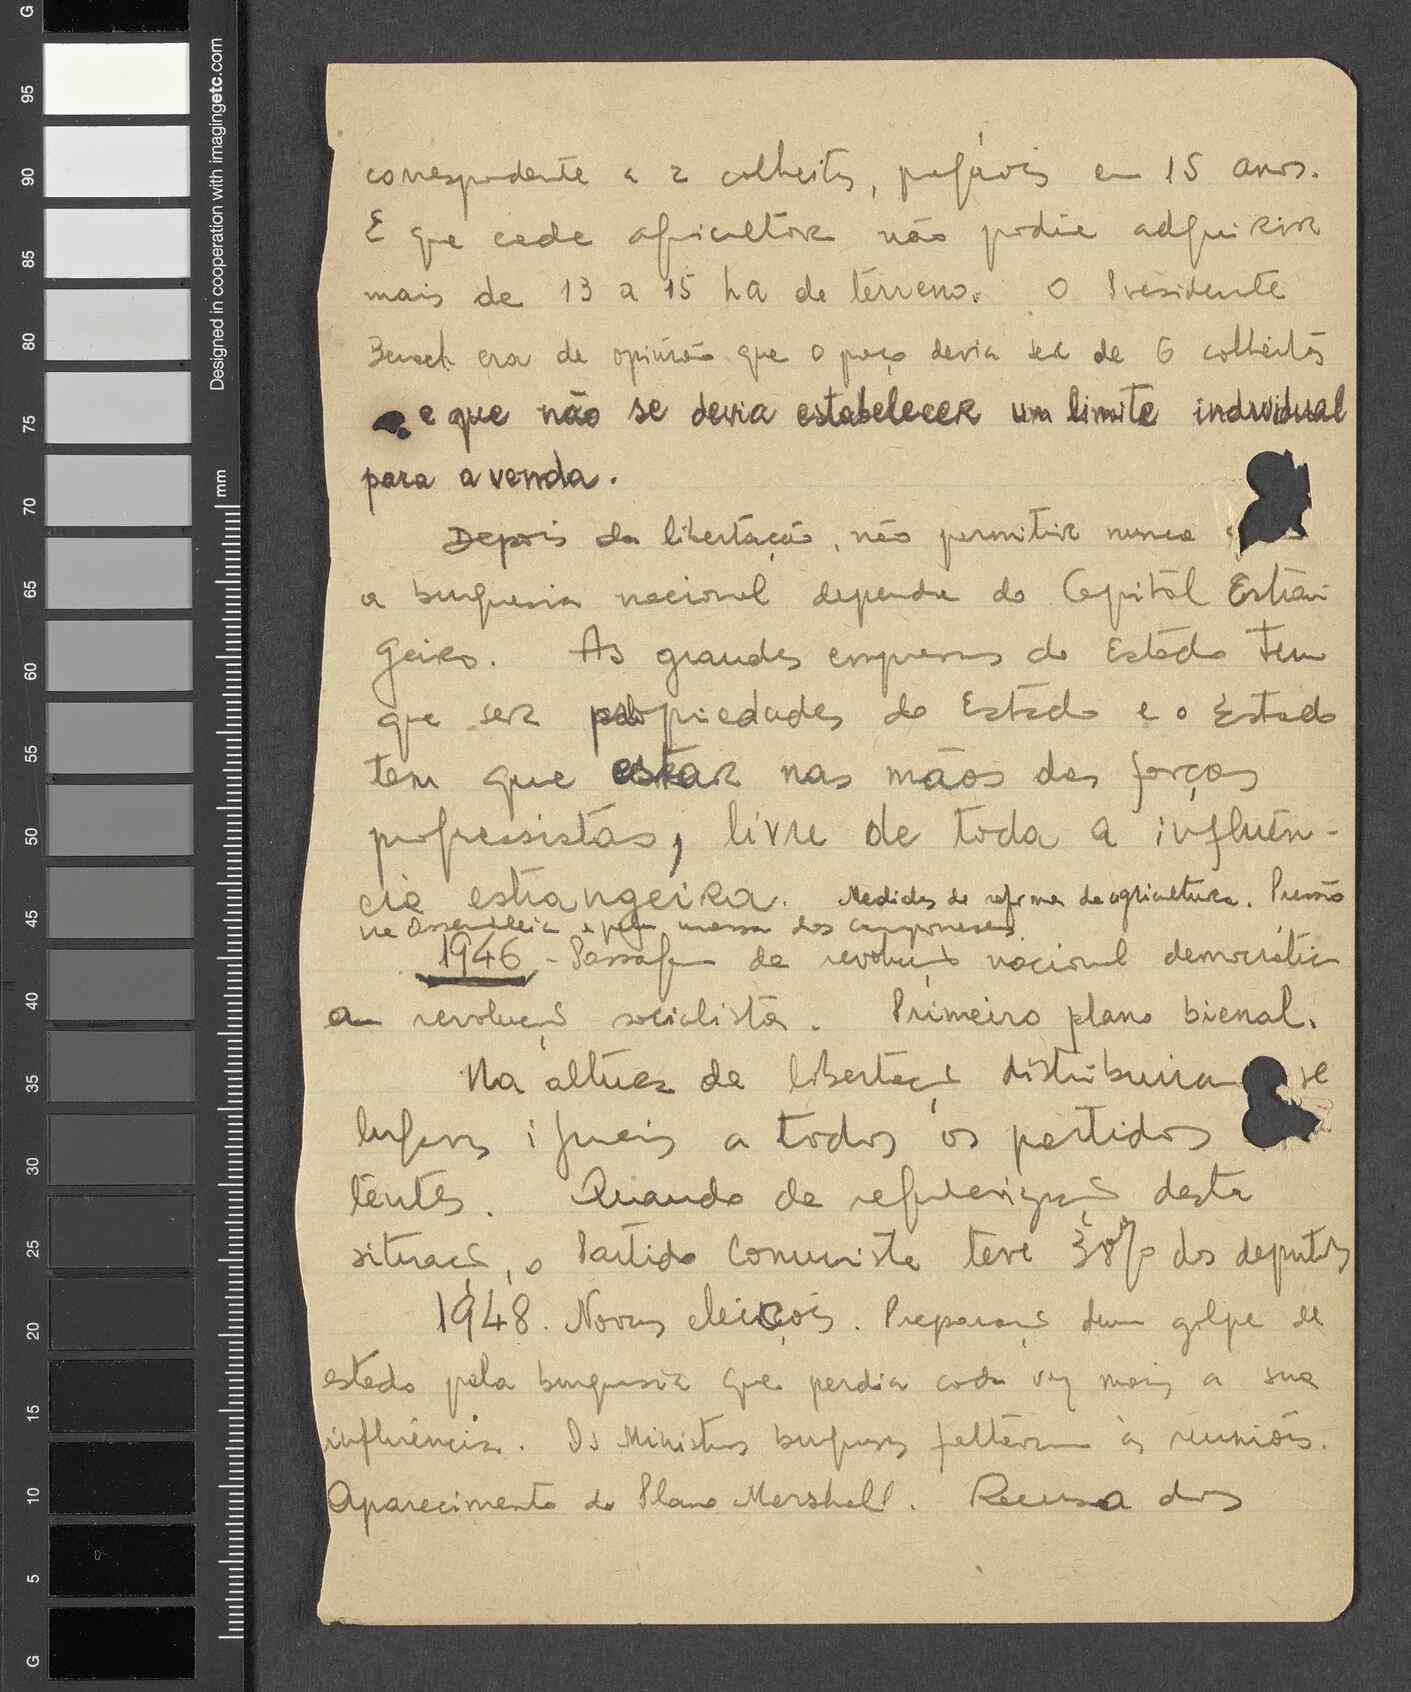 correspondente a 2 colheitas, pagáveis em 15 anos.
E que cada agricultor não podia adquirir
mais de 13 a 15 ha de terreno. O Presidente
era de opinião que o preço devia ser de 6 colheitas
e que não se devia estabelecer um limite individual
para a venda.
Depois da libertação, não permitir nunca
a burguesia nacional depender do Capital Estran-
geiro. As grandes empresas do Estado tem
que ser propriedades do Estado e o Estado
tem que estar nas mãos das forças
progressistas, livre de toda a influên-
cia estrangeira. Medidas de reforma da agricultura. Pressão
na Assembleia e pela massa dos camponeses.
1946 - Passagem da revolução nacional democrática
a revolução socialista. Primeiro plano bienal.
Na altura da libertação distribuiram se
lugares iguais a todos os partidos
tentes. Quando da regularização desta
situação, o Partido Comunista teve 38% dos deputados
1948. Novas eleições. Preparação dum golpe de
estado pela burguesia que perdia cada vez mais a sua
influência. Os Ministros burgueses faltaram às reuniões.
Aparecimento do Plano Marshall. Recusa dos
G
95
90
85
80
75
70
65
60
55
50
45
40
35
30
25
20
15
10
5
G
Designed in cooperation with imagingetc.com
mm